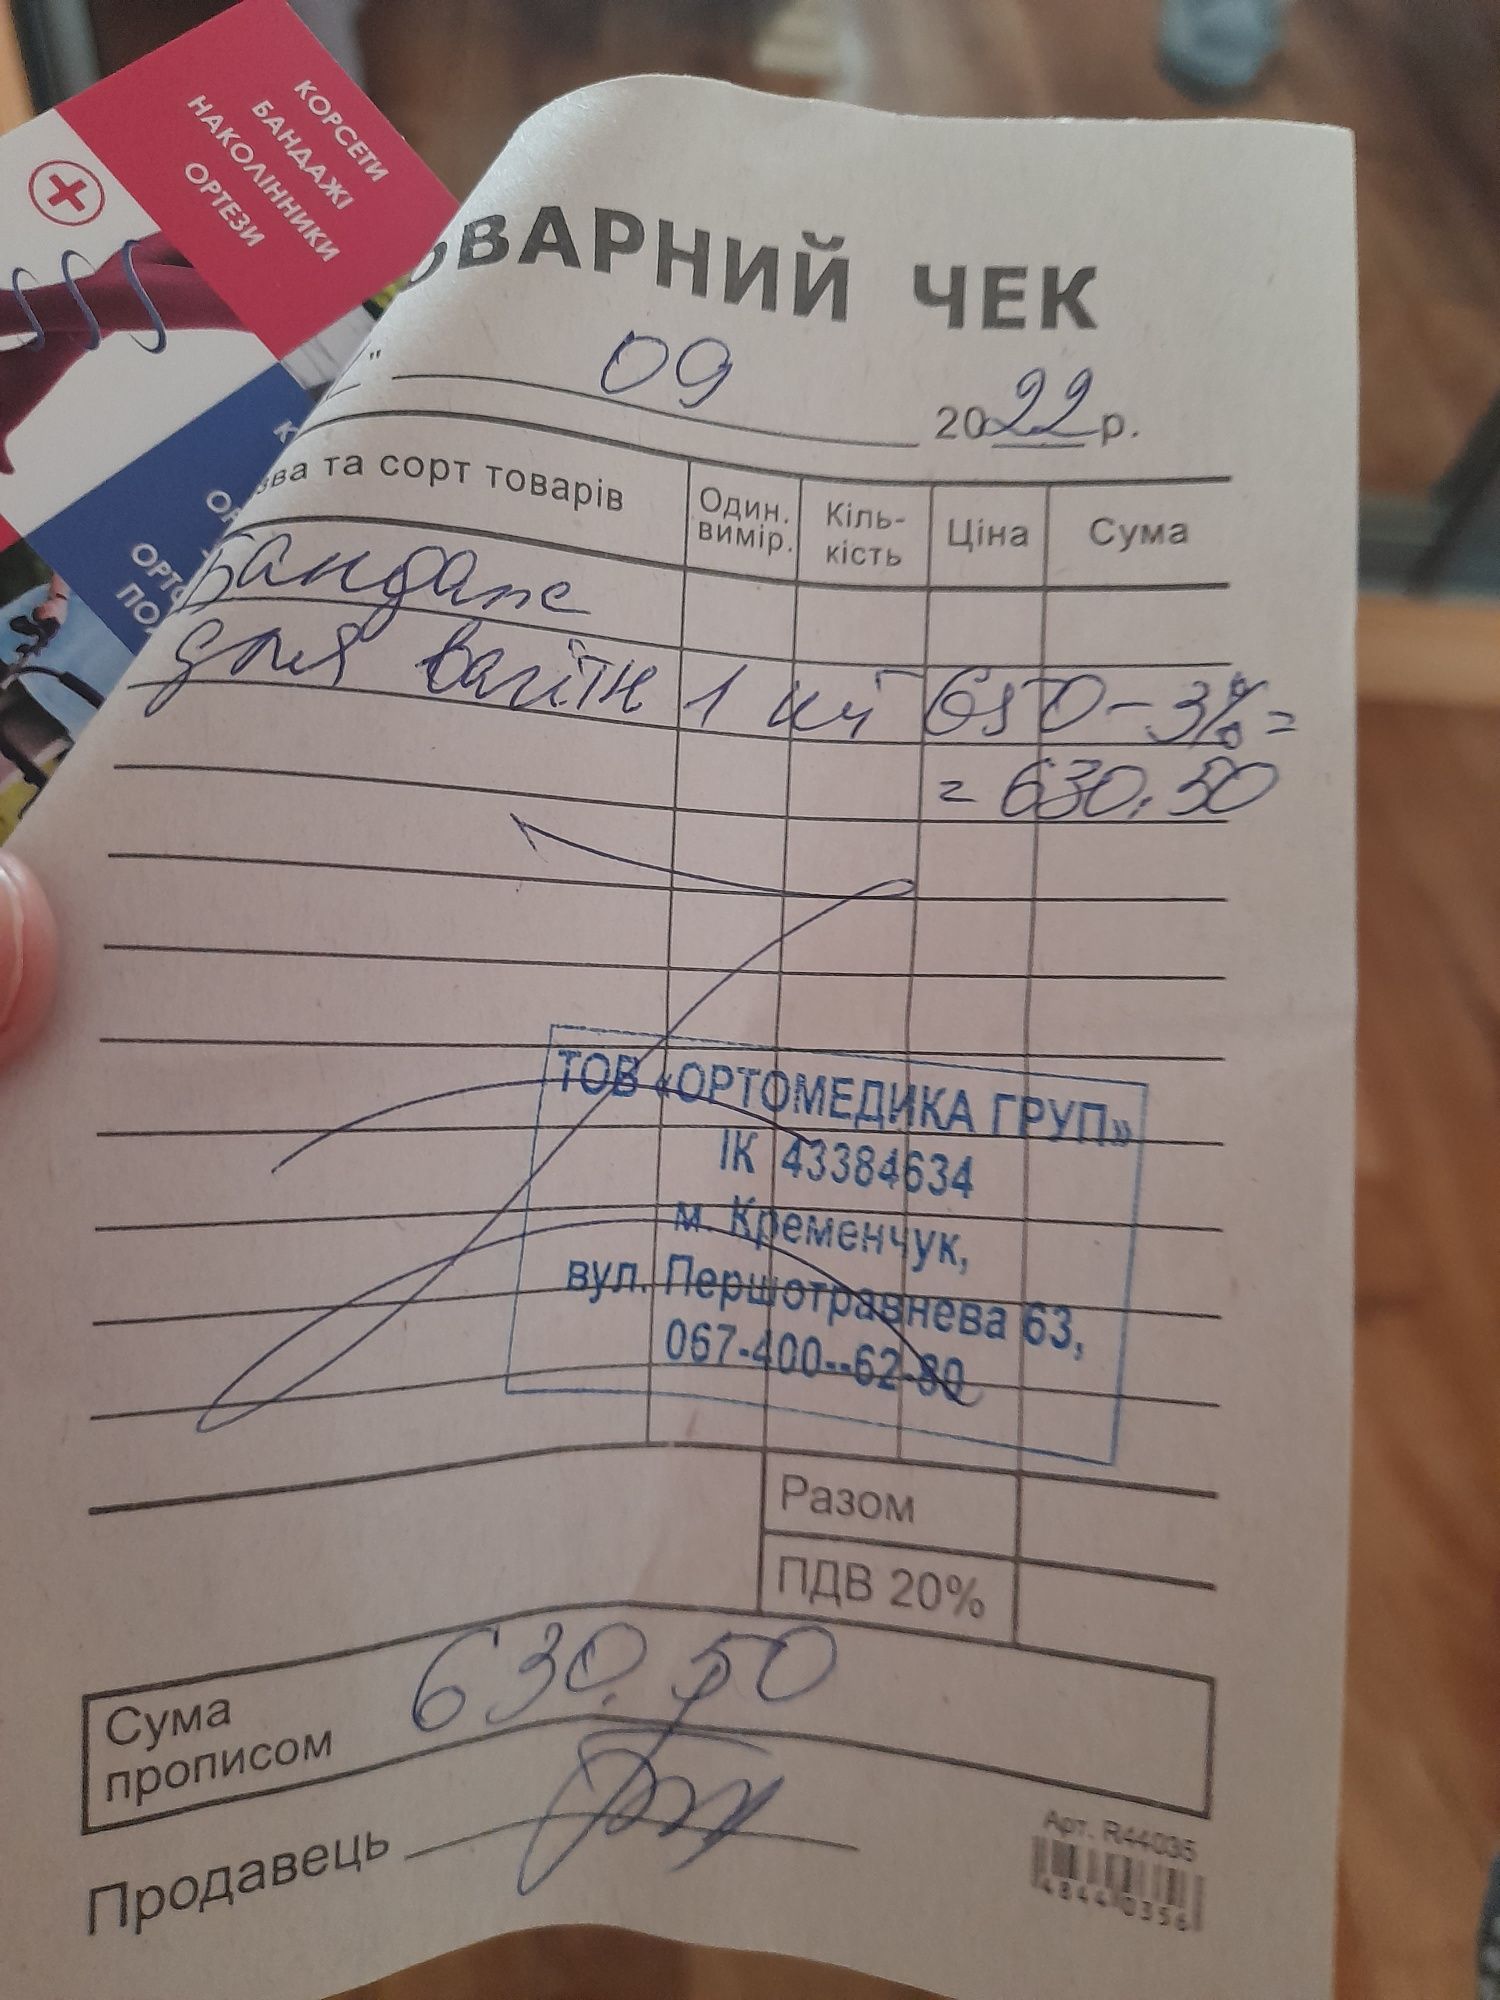 КОРСЕТИ
БАНДАЖІ
НАКОЛІННИКИ
ОРТЕЗИ
ОВАРНИЙ ЧЕК
" 09 2022 р.
зва та сорт товарів Один. вимір. Кіль-кість Ціна Сума
Бандаж
для вагітн 1 шт 650-3%=
= 630.50
ТОВ «ОРТОМЕДИКА ГРУП»
ІК 43384634
м. Кременчук,
вул. Першотравнева 63,
067-400--62-80
Разом
ПДВ 20%
Сума прописом 630.50
Продавець
Арт. R44035
48440356